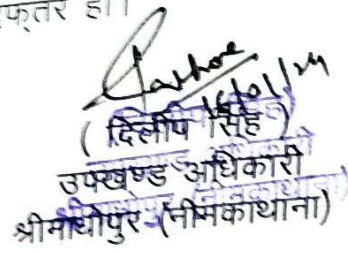 फ्तर हो।
16/01/24
( दिलीप सिंह )
उपखण्ड अधिकारी
श्रीमाधोपुर (नीमकाथाना)